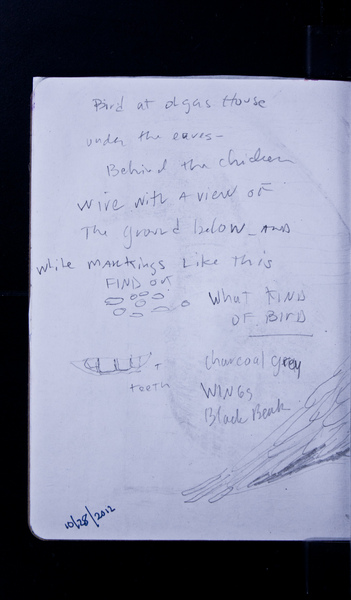 Bird at olgas House
under the eaves –
Behind the chicken
wire with A view of
The ground below – AND
while MARKings Like This
FIND OUT
WHAT KIND
OF BIRD
charcoal grey
+
teeth
WINGS
Black Beak
10/28/2012